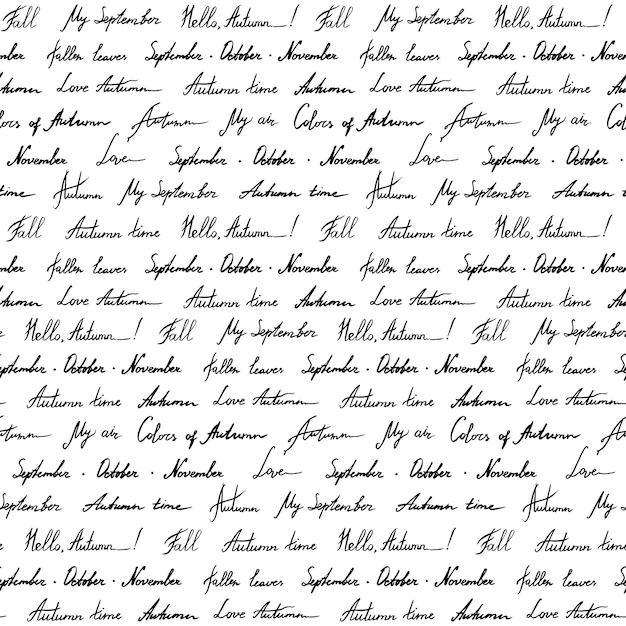 Fall My September Hello, Autumn! Fall My September Hello, Autumn!
mber Fallen leaves September · October · November Fallen leaves September · October · Nove
tumn Love Autumn Autumn time Autumn Love Autumn Autumn time Au
lors of Autumn Autumn My air Colors of Autumn Autumn My air Co
November Love September · October · November Love September · October ·
time Autumn My September Autumn time Autumn My September Autumn time
Fall Autumn time Hello, Autumn! Fall Autumn time Hello, Autumn!
mber Fallen leaves September · October · November Fallen leaves September · October · Nove
tumn Love Autumn Autumn time Autumn Love Autumn Autumn time Au
Hello, Autumn! Fall My September Hello, Autumn! Fall My September
eptember · October · November Fallen leaves September · October · November Fallen leaves Se
Autumn time Autumn Love Autumn Autumn time Autumn Love Autumn
utumn My air Colors of Autumn Autumn My air Colors of Autumn Au
September · October · November Love September · October · November Love
September Autumn time Autumn My September Autumn time Autumn My S
Hello, Autumn! Fall Autumn time Hello, Autumn! Fall Autumn
eptember · October · November Fallen leaves September · October · November Fallen leaves Se
Autumn time Autumn Love Autumn Autumn time Autumn Love Autumn